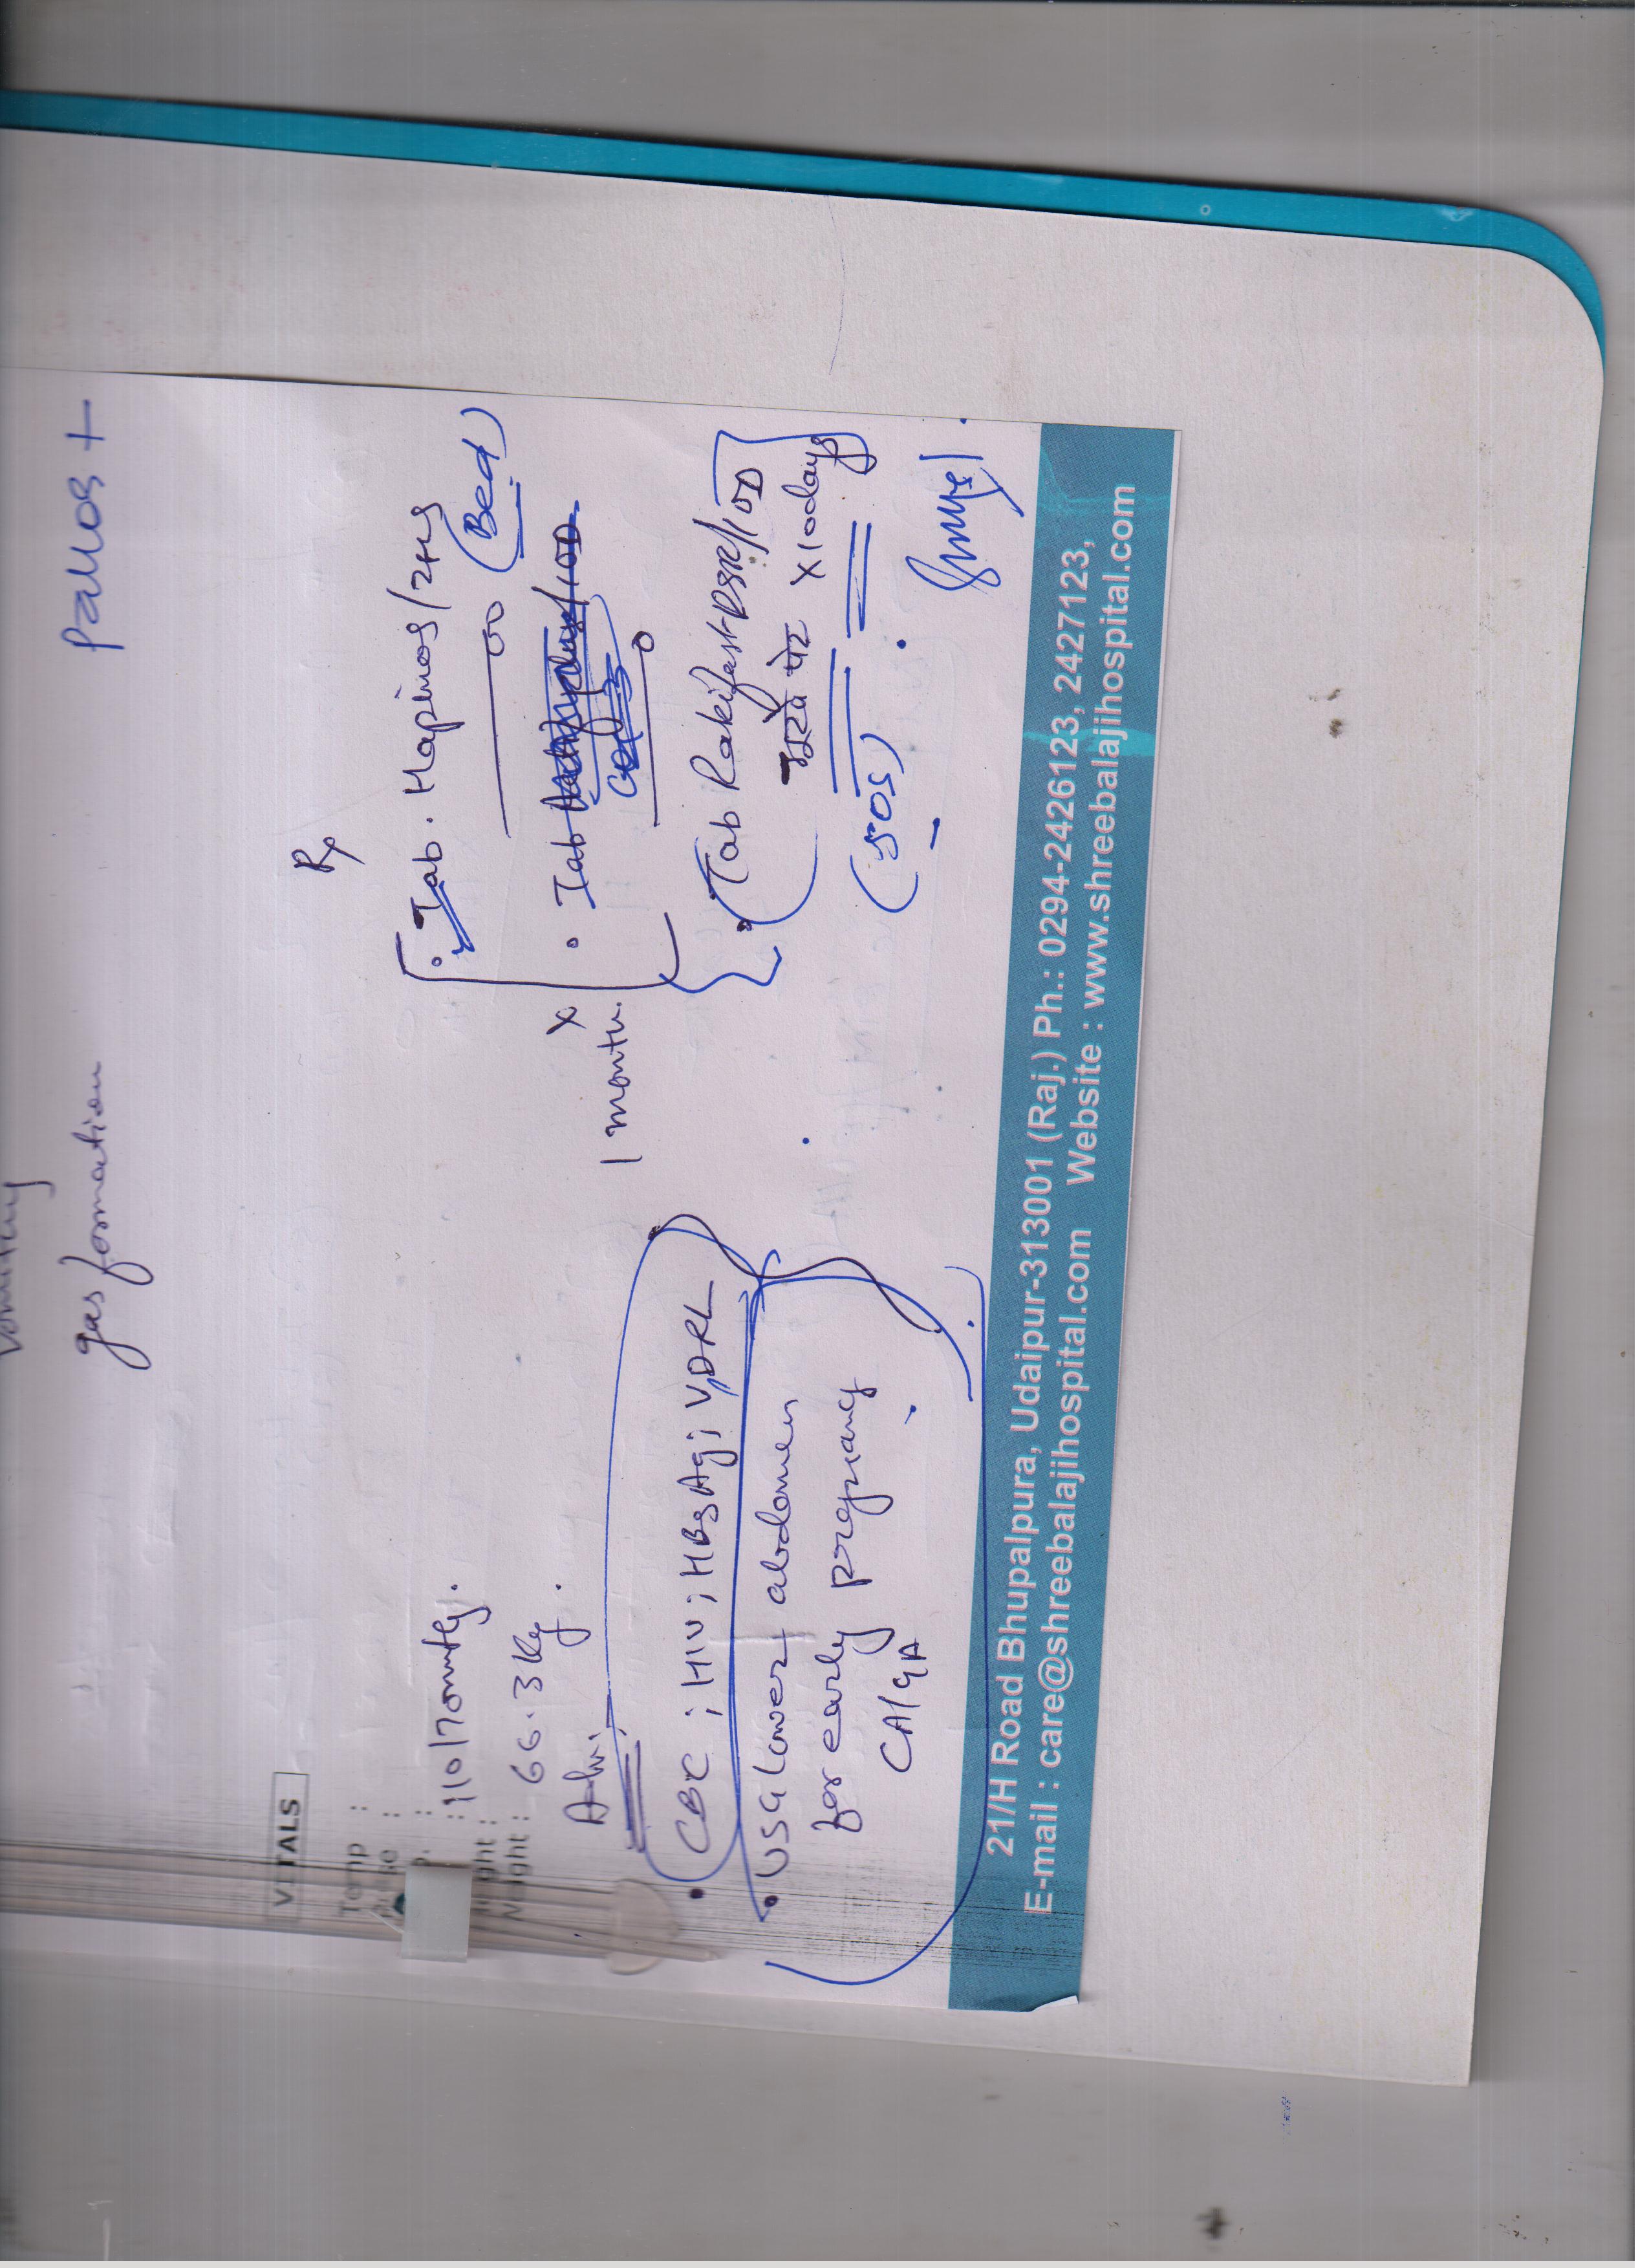 Vomiting
gas formation
Pallor +
VITALS
Temp :
:
:
: 110/70mmHg.
Weight : 66.3 Kg.
Adv:
• CBC ; HIV ; HBsAg ; VDRL
• USG lower abdomen
for early pregnancy
CA/GA
Rx
• Tab. Hapinos/2HS
00 (Bed)
• Tab
0
x
1 month.
• Tab Rakifast-DSR/1OD
भूखे पेट x10days
(SOS)
21/H Road Bhupalpura, Udaipur-313001 (Raj.) Ph.: 0294-2426123, 2427123,
E-mail : care@shreebalajihospital.com Website : www.shreebalajihospital.com